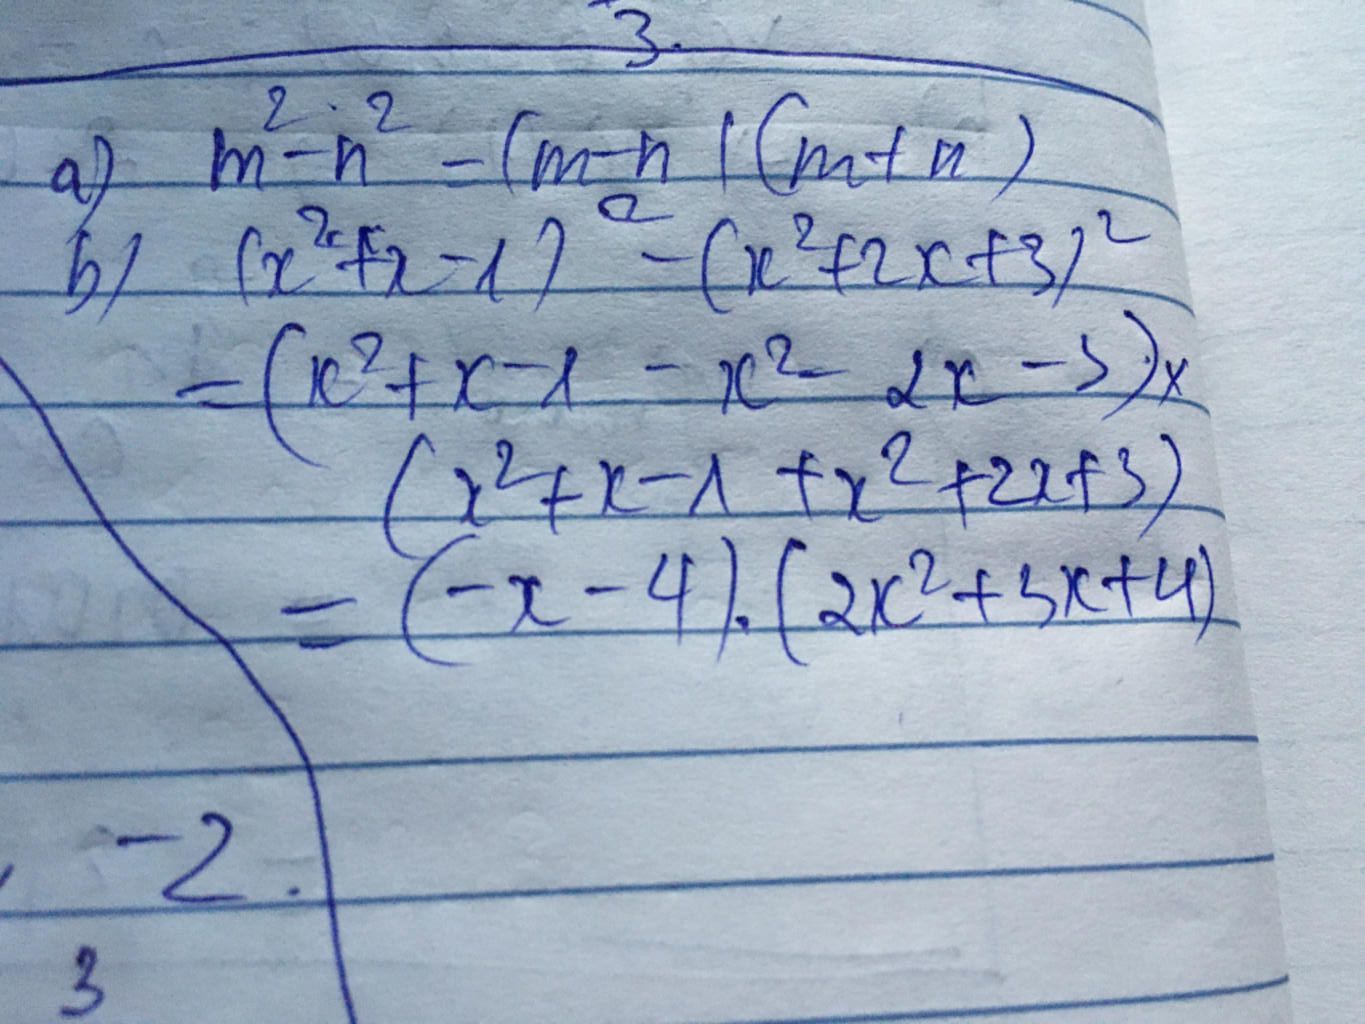 3.
a) m² - n² = (m-n)(m+n)
b) (x²+x-1)² - (x²+2x+3)²
= (x²+x-1 - x² - 2x - 3)x
(x²+x-1 +x²+2x+3)
= (-x-4).(2x²+3x+4)
-2.
3